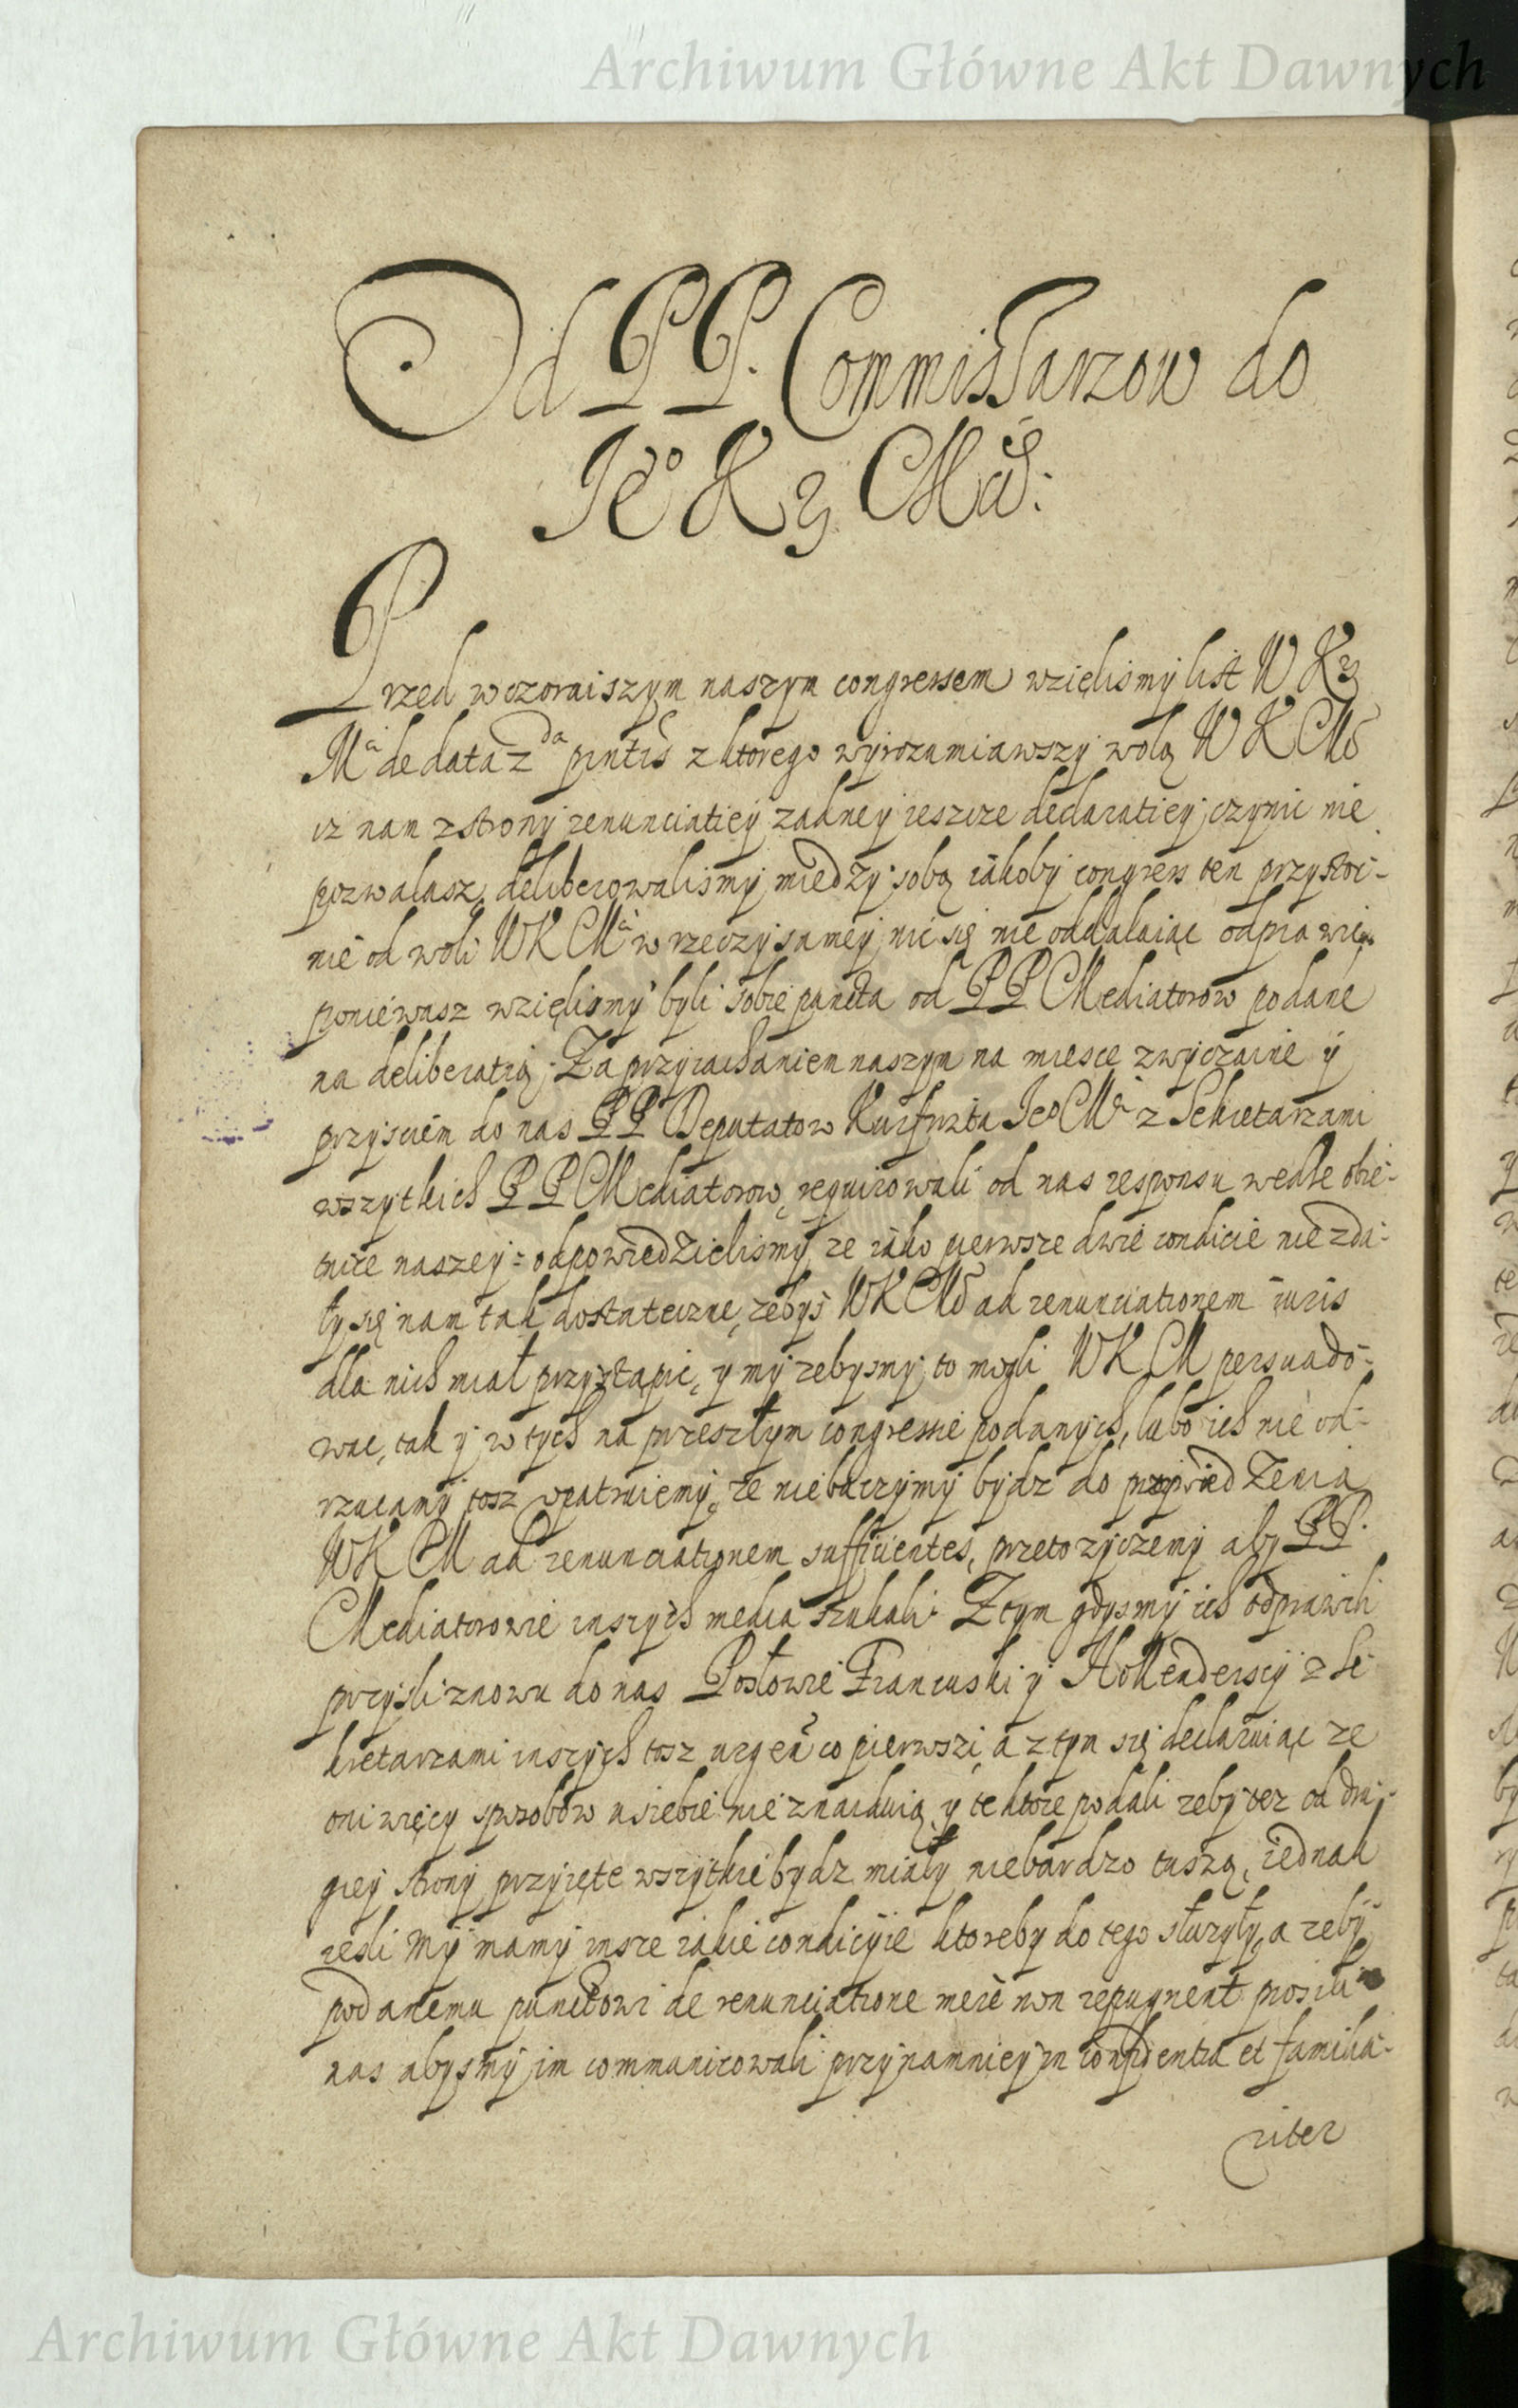 Archiwum Główne Akt Dawnych
Od PP. Commissarzow do
Jeº K. Mći.
Przed wczoraiszym naszym congressem wzięlismy list W K
Mci de data 2da pntis z ktorego wyrozumiawszy wolą W K Mći
iz nam z strony renunciatiey zadney ieszcze declaratiey czynic nie
pozwalasz, deliberowalismy między sobą iakoby congress ten przystoi-
nie od woli WKMci w rzeczy samey nic się nie oddalaiąc odprawic
poniewasz wzięlismy byli sobie puncta od PP Mediatorow podane
na deliberatią; Za przyiachaniem naszym na miesce zwyczaine y
przysciem do nas PP Deputatow Kurfirszta Jeº Mci z Sekretarzami
wszytkich PP Mediatorow, requirowali od nas responsu wedle obie-
tnice naszey: odpowiedzielismy, ze iako pierwsze dwie condicie nie zda-
ły się nam tak dostateczne, zebys WKMć ad renunciationem iuris
dla nich miał przystąpic, y my zebysmy to mogli WKM persuado-
wac, tak y w tych na przeszłym congressie podanych, lubo ich nie od-
rzucamy tosz upatruiemy, ze nie baczymy bydz do przywiedzenia
WKM ad renunciationem sufficientes, przeto zyczemy aby PP.
Mediatorowie inszych media szukali. Z tym gdysmy ich odprawili
przysli znowu do nas Posłowie Francuski y Hollenderscy z Se-
kretarzami inszych tosz urgeń co pierwszi, a z tym się declaruiąc ze
oni więcy sposobow u siebie nie znaiduią, y te ktore podali zeby tez od dru-
giey strony przyięte wszytkie bydz miały nie bardzo tuszą, iednak
iesli my mamy insze iakie condicyie ktoreby do tego słuzyły, a zeby
podanemu punctowi de renunciatione mere non repugnent prosili
nas abysmy im communicowali przynamniey in confidentia et familia-
riter
Archiwum Główne Akt Dawnych